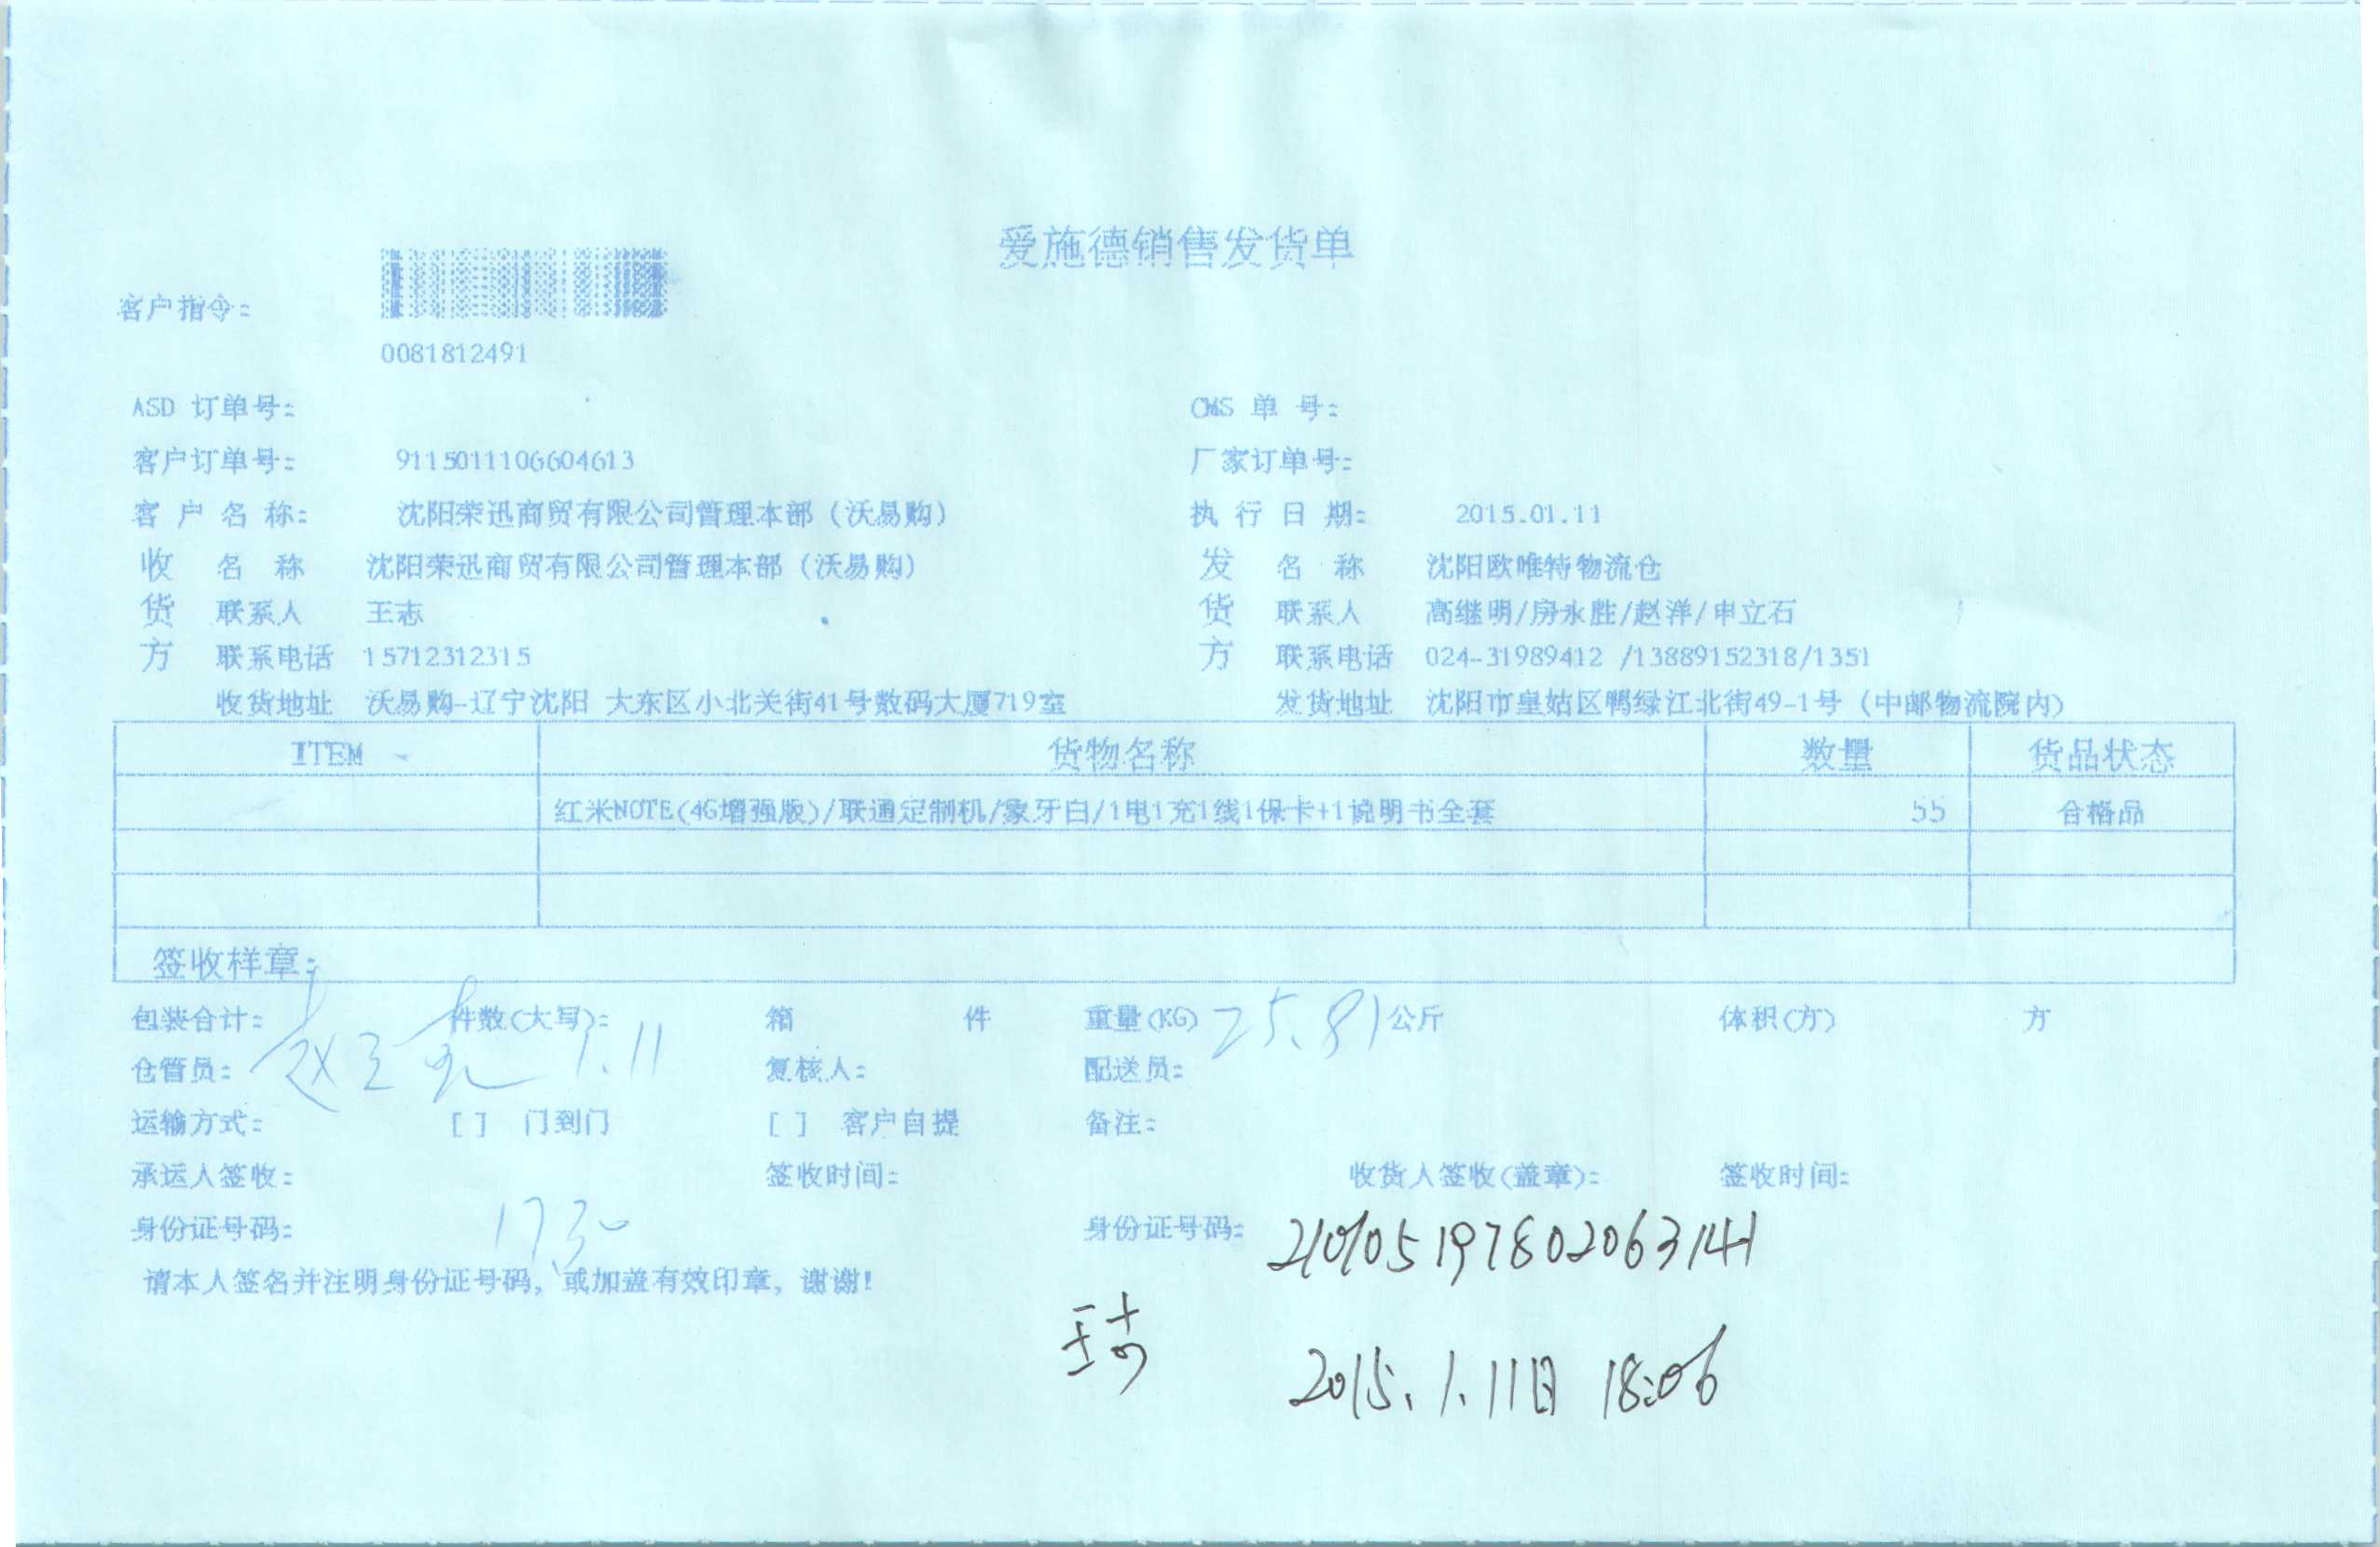 爱施德销售发货单
客户指令:
0081812491
ASD 订单号: CMS 单 号:
客户订单号: 9115011106604613 厂家订单号:
客 户 名 称: 沈阳荣迅商贸有限公司管理本部（沃易购） 执 行 日 期: 2015.01.11
收 名 称 沈阳荣迅商贸有限公司管理本部（沃易购） 发 名 称 沈阳欧唯特物流仓
货 联系人 王志 货 联系人 高继明/房永胜/赵洋/申立石
方 联系电话 15712312315 方 联系电话 024-31989412 /13889152318/1351
收货地址 沃易购-辽宁沈阳 大东区小北关街41号数码大厦719室 发货地址 沈阳市皇姑区鸭绿江北街49-1号（中邮物流院内）
ITEM 货物名称 数量 货品状态
红米NOTE(4G增强版)/联通定制机/象牙白/1电1充1线1保卡+1说明书全套 55 合格品
签收样章:
包装合计: 件数(大写): 箱 件 重量(KG) 25.81 公斤 体积(方) 方
仓管员: 1.11 复核人: 配送员:
运输方式: [ ] 门到门 [ ] 客户自提 备注:
承运人签收: 签收时间: 收货人签收(盖章): 签收时间:
身份证号码: 17.30 身份证号码: 210105197802063141
请本人签名并注明身份证号码，或加盖有效印章，谢谢!
2015.1.11日 18:06